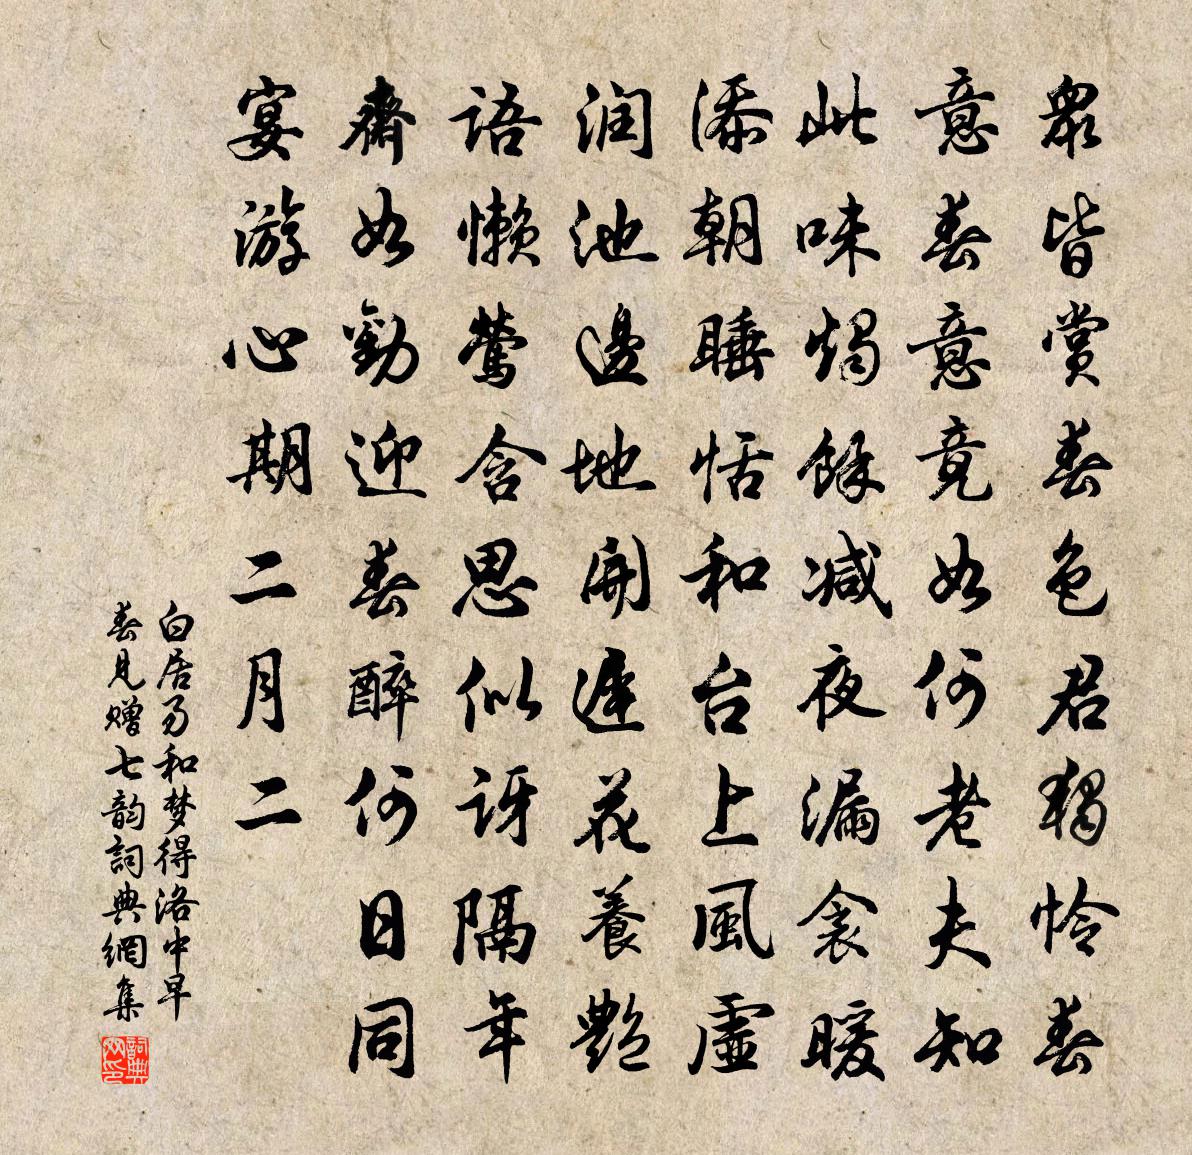 眾皆賞春色君獨怜春
意春意意竟如何老夫知
此味燭餘减夜漏衾暖
添朝睡恬和台上風虛
润池邊地開遲花養艷
语懒鶯含思似讶隔年
齋如勸迎春醉何日同
宴游心期二月二
白居易和梦得洛中早
春見赠七韵詞典網集
詞典
网印